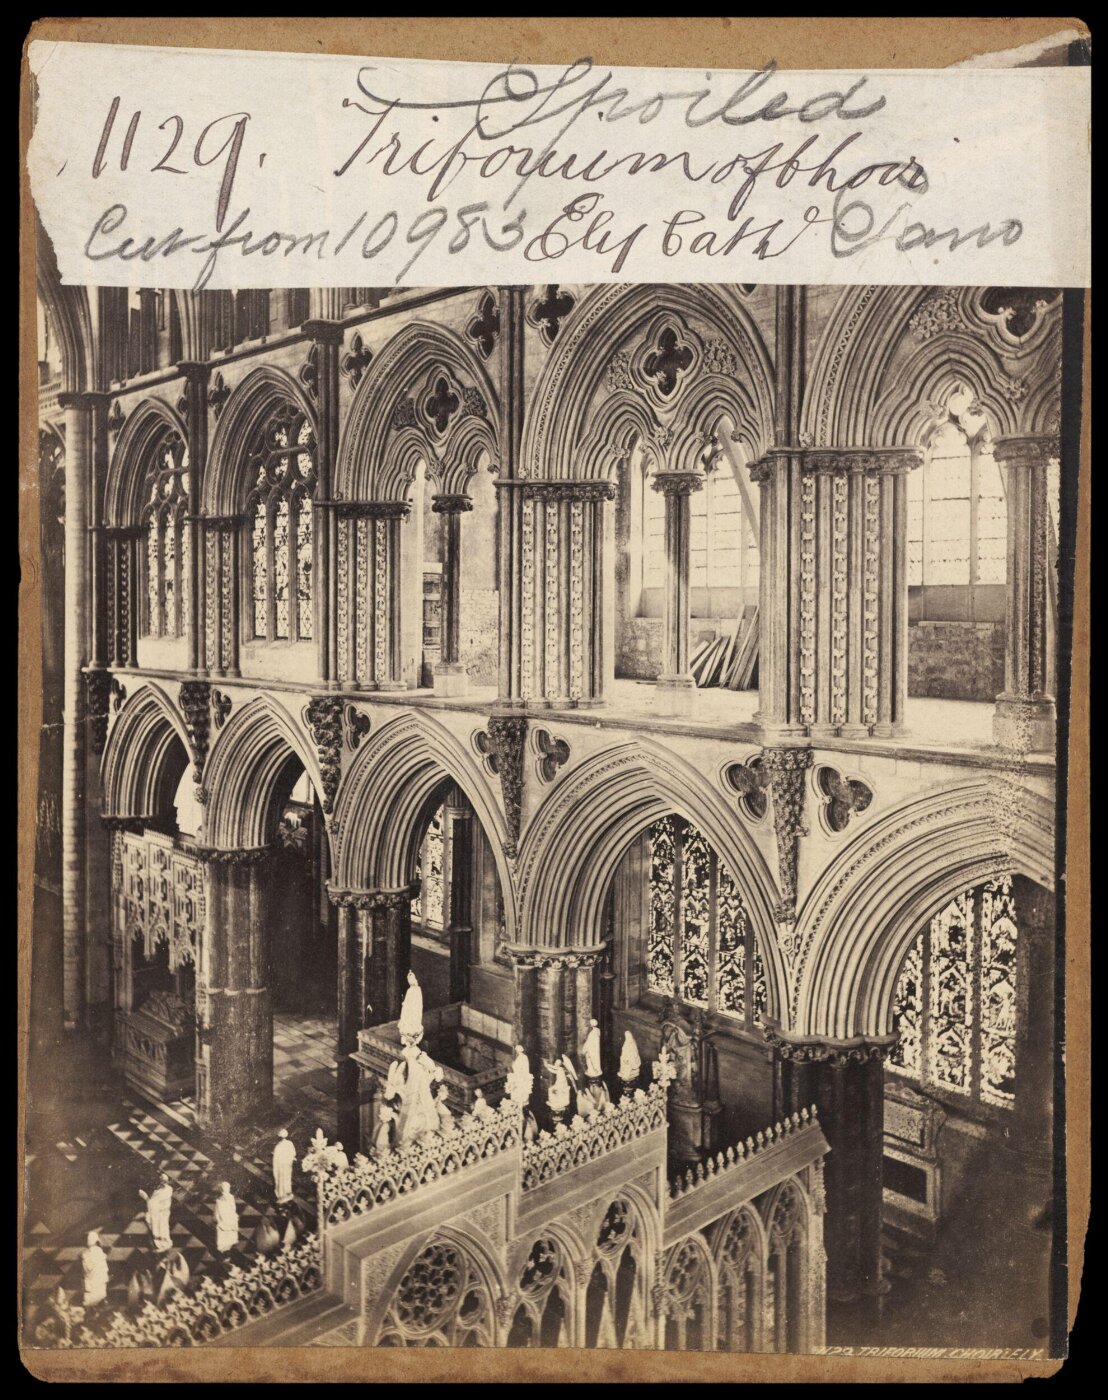 Spoiled
1129. Triforium of Choir
Cut from 10983 Ely Cathd
1129. TRIFORIUM. CHOIR. ELY.